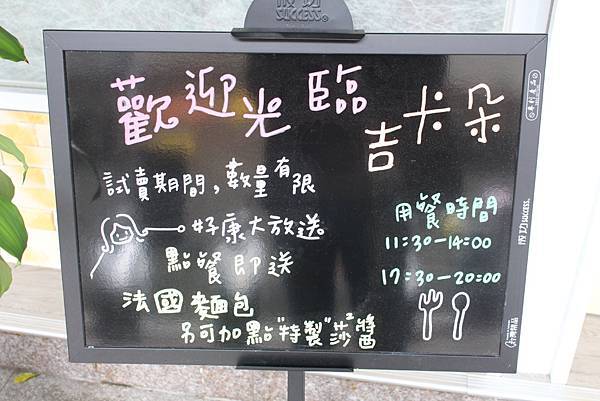 成功
SUCCESS®
歡迎光臨
吉卡朵
試賣期間,數量有限
好康大放送
點餐即送
法國麵包
另可加點"特製"莎²醬
用餐時間
11:30-14:00
17:30-20:00
專利產品
成功 success.
台灣精品